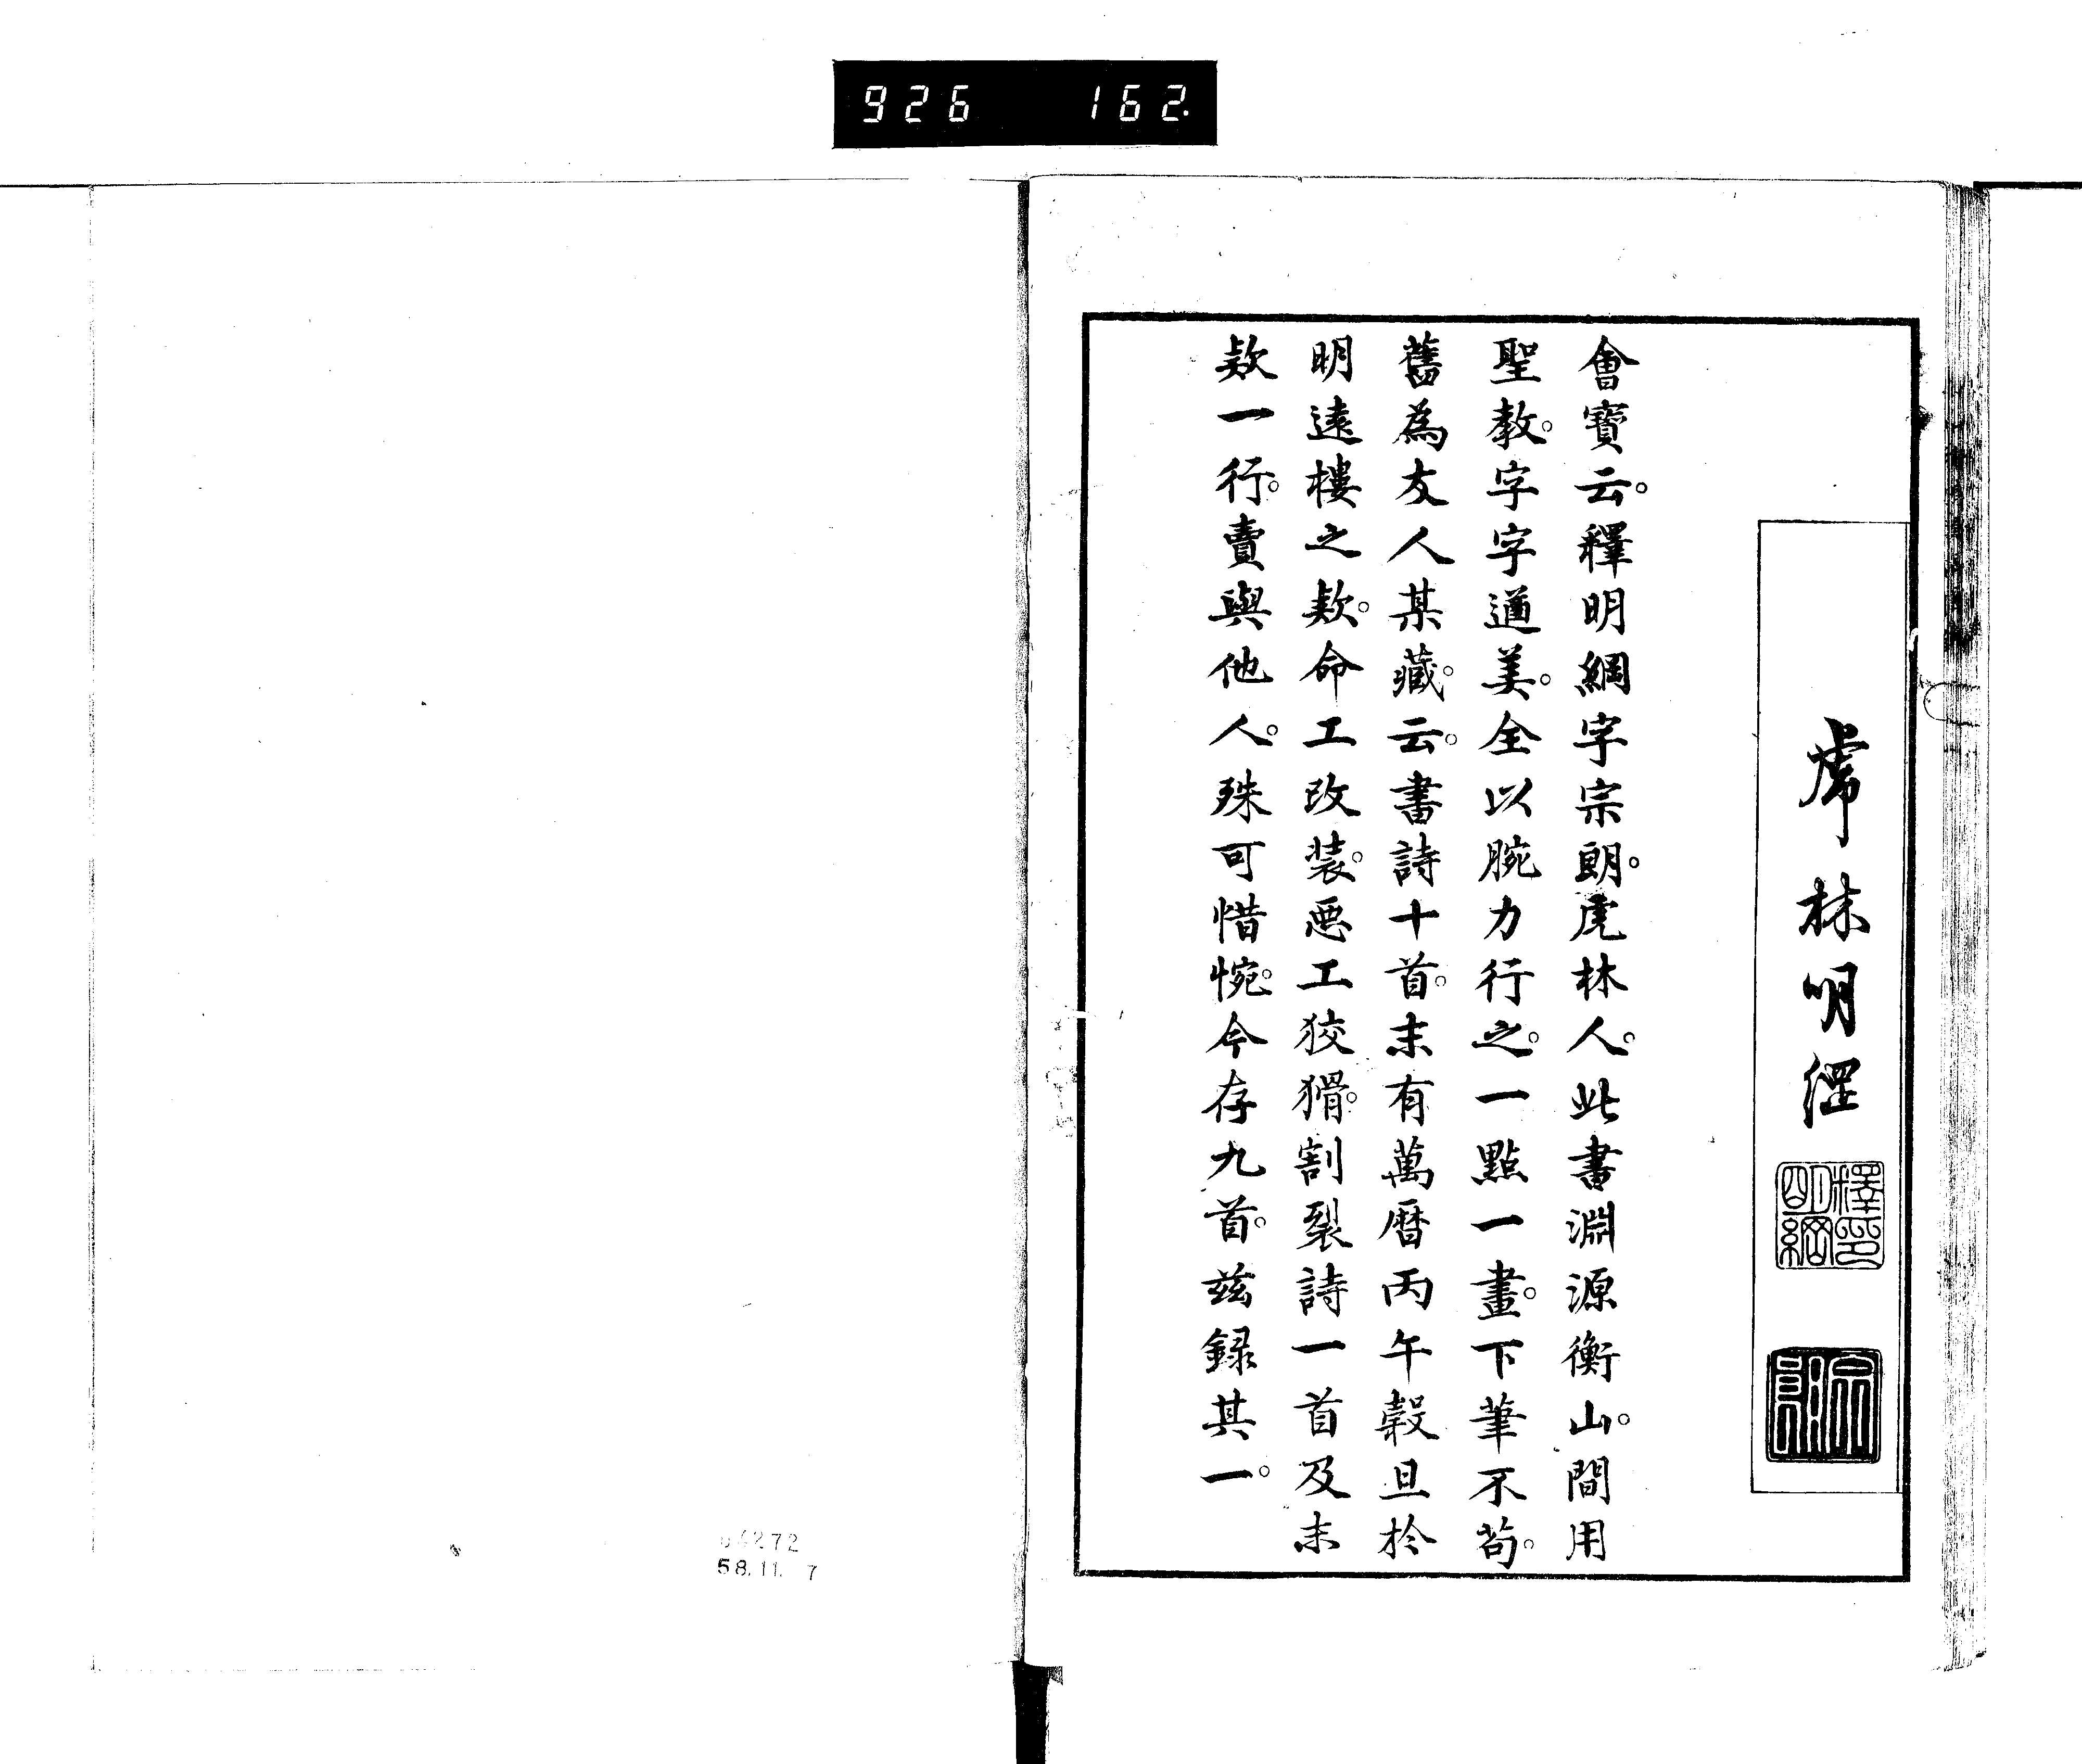 926 162.
虎林明綱
釋明綱印
宗朗
會寶云。釋明綱字宗朗。虎林人。此書淵源衡山。間用
聖教。字字遒美。全以腕力行之。一點一畫。下筆不苟。
舊為友人某藏。云。書詩十首。末有萬曆丙午穀旦於
明遠樓之款。命工改裝。惡工狡猾。割裂詩一首及末
款一行。賣與他人。殊可惜惋。今存九首。茲録其一。
58.11. 7